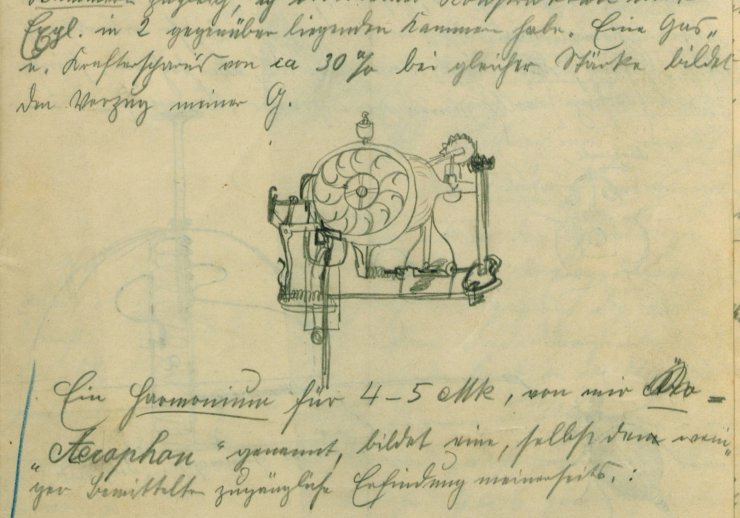 zugleich,
Expl. in 2 gegenüber liegenden Kammern habe. Eine Gas-
u. Kraftersparniß von ca 30 % bei gleicher Stärke bildet
den Vorzug meiner G.
Ein Harmonium für 4–5 Mk, von mir
„Aerophon“ genannt, bildet eine, selbst dem weni-
ger Bemittelten zugängliche Erfindung meinerseits. :